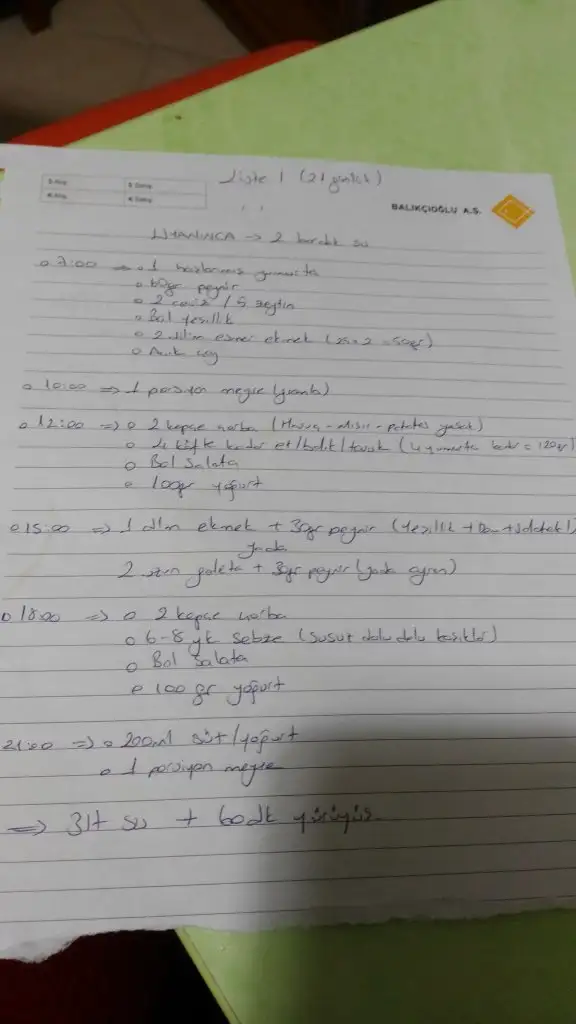 Liste 1 (21 günlük)
BALIKÇIOĞLU A.Ş.
UYANINCA → 2 bardak su
o 7:00 ⇒ o 1 haşlanmış yumurta
o 60gr peynir
o 2 ceviz / 5 zeytin
o Bol yeşillik
o 2 dilim esmer ekmek (25x2=50gr)
o Açık çay
o 10:00 ⇒ 1 porsiyon meyve
o 12:00 ⇒ o 2 kepçe çorba (Havuç-Mısır-patates yasak)
o 4 köfte kadar et/balık/tavuk (4 yumurta kadar = 120gr)
o Bol Salata
o 100gr yoğurt
o 15:00 ⇒ 1 dlm ekmek + 30gr peynir (Yeşillik + Dom + Salatalık)
yada
2 galeta + 30gr peynir (yada ayran)
o 18:00 ⇒ o 2 kepçe çorba
o 6-8 yk sebze
o Bol Salata
o 100 gr yoğurt
21:00 ⇒ o 200ml süt/yoğurt
o 1 porsiyon meyve
⇒ 3lt su + 60dk yürüyüş